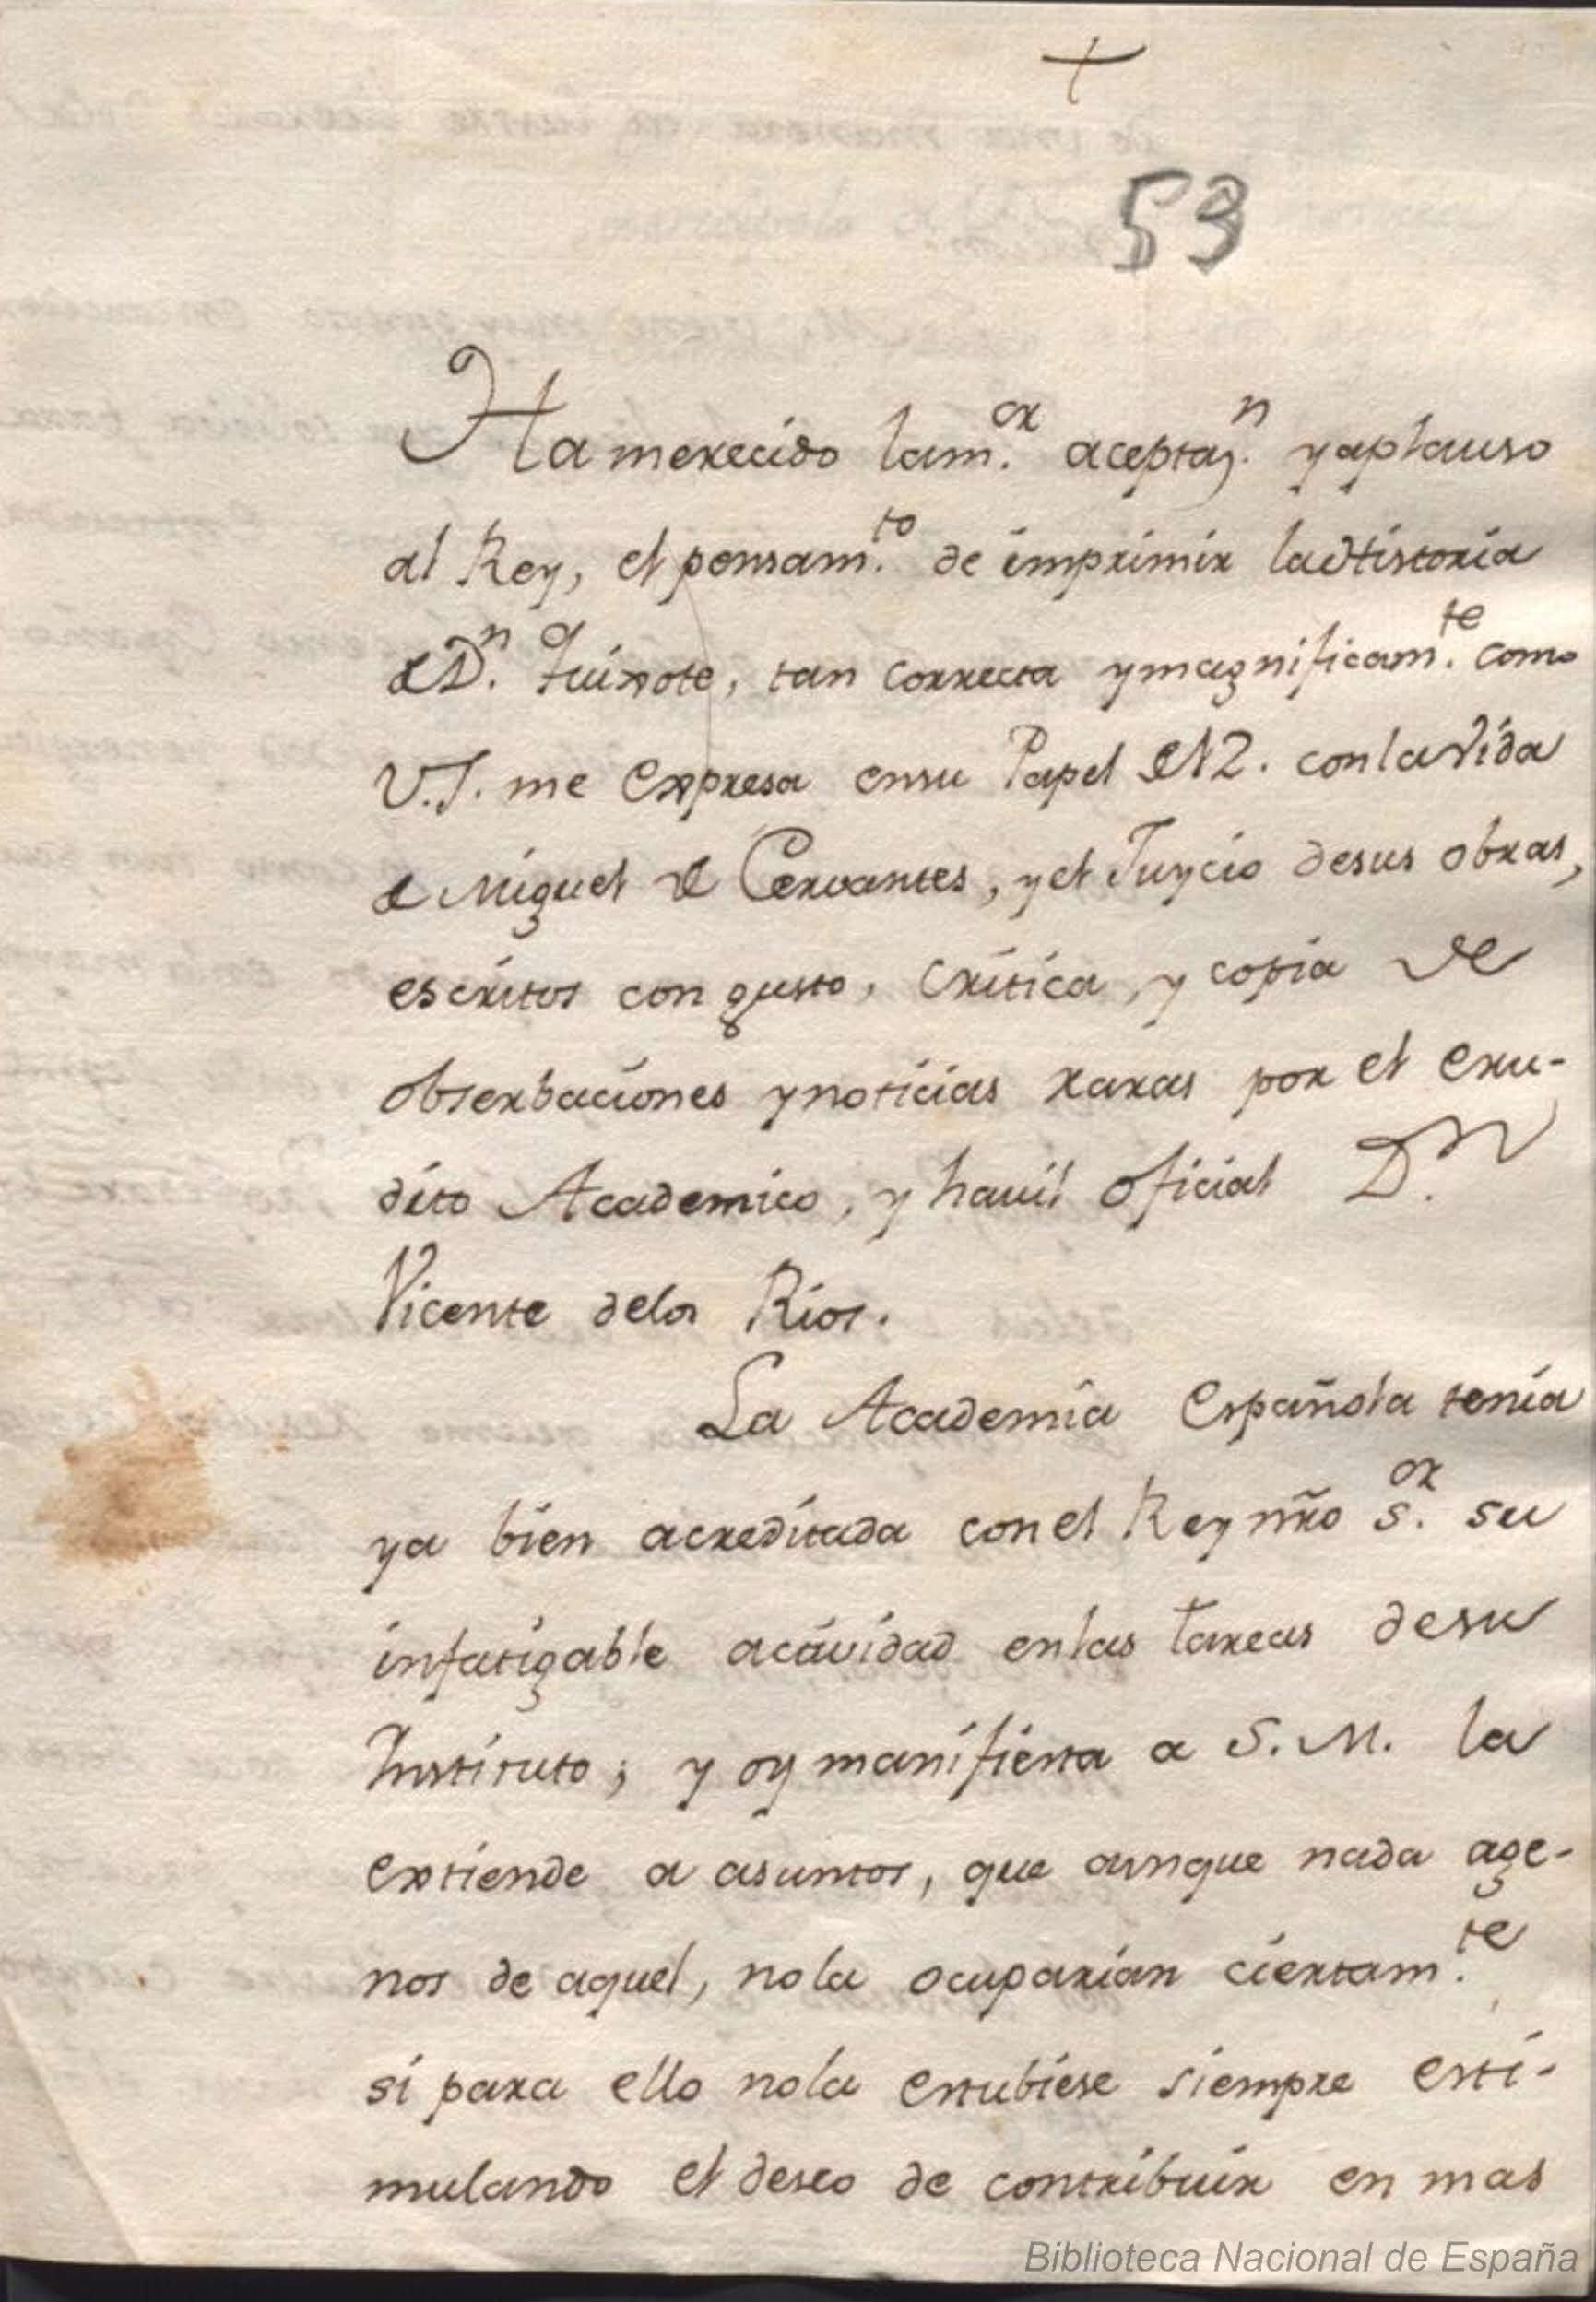 +
53
Ha merecido la m.or aceptaz.n y aplauso
al Rey, el pensam.to de imprimir la Historia
de D.n Quixote, tan correcta y magnificam.te como
V.S. me expresa en su Papel de 12. con la Vida
de Miguel de Cervantes, y el Juycio de sus obras,
escritos con gusto, critica, y copia de
obserbaciones y noticias raras por el eru-
dito Academico, y havil oficial D.n
Vicente de los Rios.
La Academia Española tenia
ya bien acreditada con el Rey nr̃o S.or su
infatigable actividad en las tareas de su
Instituto; y oy manifiesta a S.M. la
extiende a asuntos, que aunque nada age-
nos de aquel, no la ocuparian ciertam.te
si para ello no la estubiese siempre esti-
mulando el deseo de contribuir en mas
Biblioteca Nacional de España